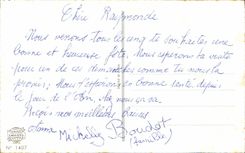 Chère Raymonde
Nous venons tous les cinq te souhaiter une
bonne et heureuse fête. Nous espérons ta visite
pour un de ces dimanches comme tu nous l'a
promis; Nous t'espérons en bonne santé depuis
le jour de l'An, ici nous ça va.
Reçois nos meilleurs baisers
Michèle Boudot
(famille)
N° 1407